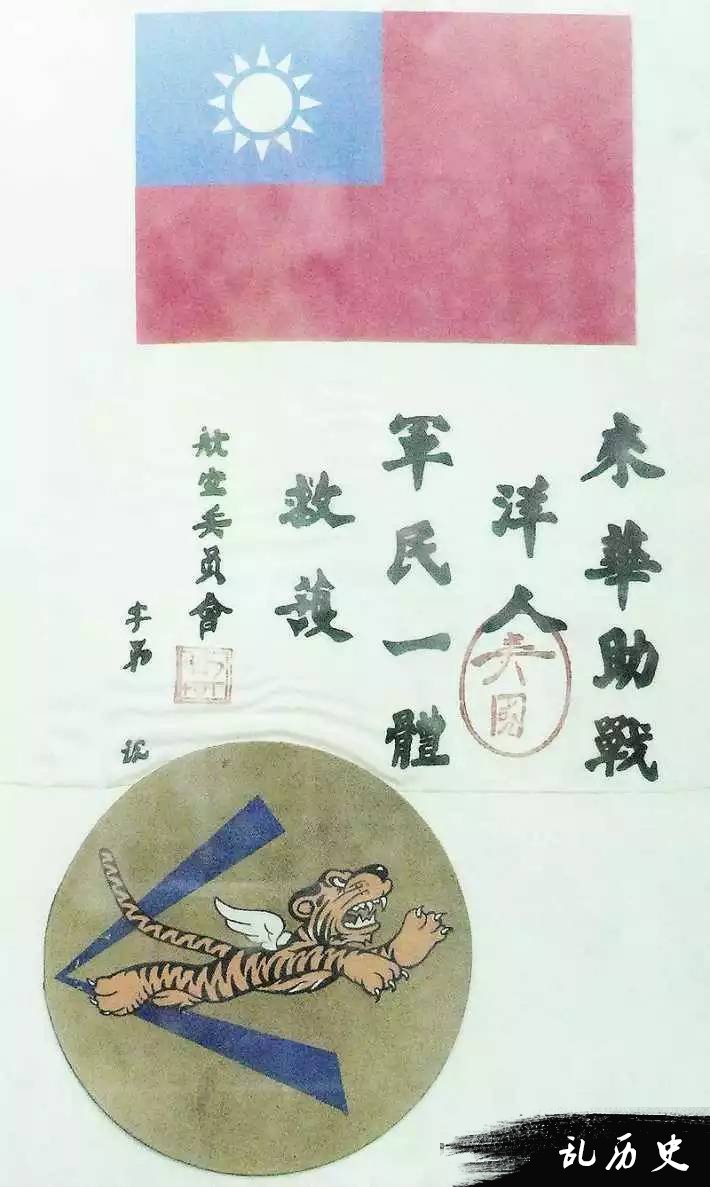 来華助戰
洋人
美國
軍民一體
救護
航空委員會
字第 號
乱历史